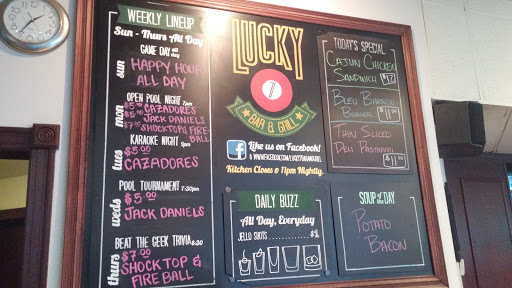 WEEKLY LINEUP
Sun - Thurs All Day
sun
GAME DAY all day
HAPPY HOUR
ALL DAY
mon
OPEN POOL NIGHT 7pm
$5.00 CAZADORES
$5.00 JACK DANIELS
$7.00 SHOCKTOP & FIRE-
BALL
tues
KARAOKE NIGHT 9pm
$5.00
CAZADORES
weds
POOL TOURNAMENT 7:30pm
$5.00
JACK DANIELS
thurs
BEAT THE GEEK TRIVIA 8:30
$7.00
SHOCKTOP &
FIREBALL
LUCKY
7
BAR & GRILL
f
Like us on Facebook!
Kitchen Closes @ 11pm Nightly.
DAILY BUZZ
All Day, Everyday
JELLO SHOTS
TODAY'S SPECIAL
CAJUN CHICKEN
SANDWICH
BURGER
$11.00
THIN SLICED
DELI PASTRAMI
$11.00
SOUP of the DAY
POTATO
BACON